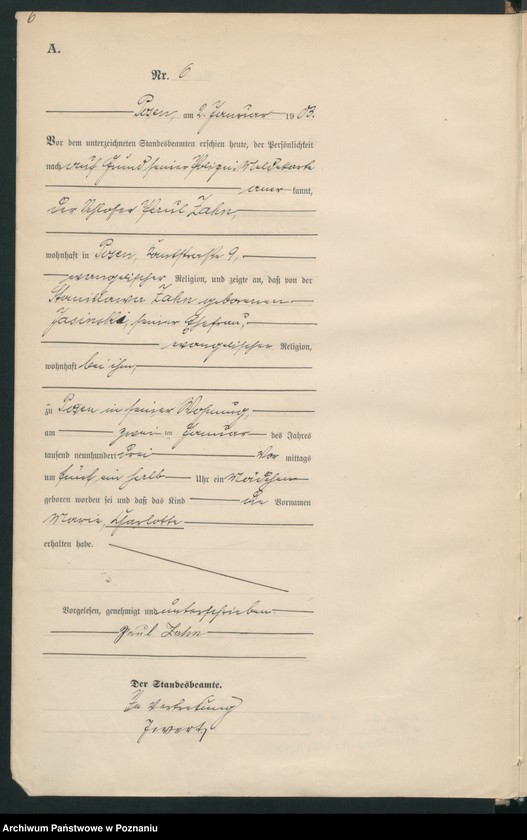 6
A.
Nr. 6
Posen, am 2. Januar 1903.
Vor dem unterzeichneten Standesbeamten erschien heute, der Persönlichkeit
nach auf Grund seiner Polizei Meldekarte
aner kannt,
der Schlosser Paul Zahn,
wohnhaft in Posen, 9,
evangelischer Religion, und zeigte an, daß von der
Stanislawa Zahn geborenen
Jasinski, seiner Ehefrau,
evangelischer Religion,
wohnhaft bei ihm,
zu Posen in seiner Wohnung,
am zwei ten Januar des Jahres
tausend neunhundert drei Vor mittags
um fünf ein halb Uhr ein Mädchen
geboren worden sei und daß das Kind die Vornamen
Maria, Charlotte
erhalten habe.
Vorgelesen, genehmigt und unterschrieben
Paul Zahn
Der Standesbeamte.
In Vertretung
Archiwum Państwowe w Poznaniu